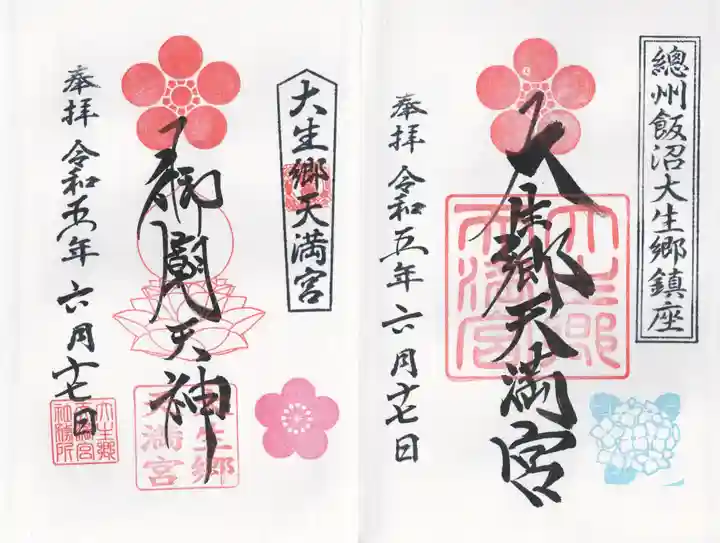 總州飯沼大生郷鎮座
大生郷天満宮
奉拝 令和五年 六月十七日
大生郷天満宮
御廟天神
奉拝 令和五年 六月十七日
大生郷
天満宮
大生郷
天満宮
社務所